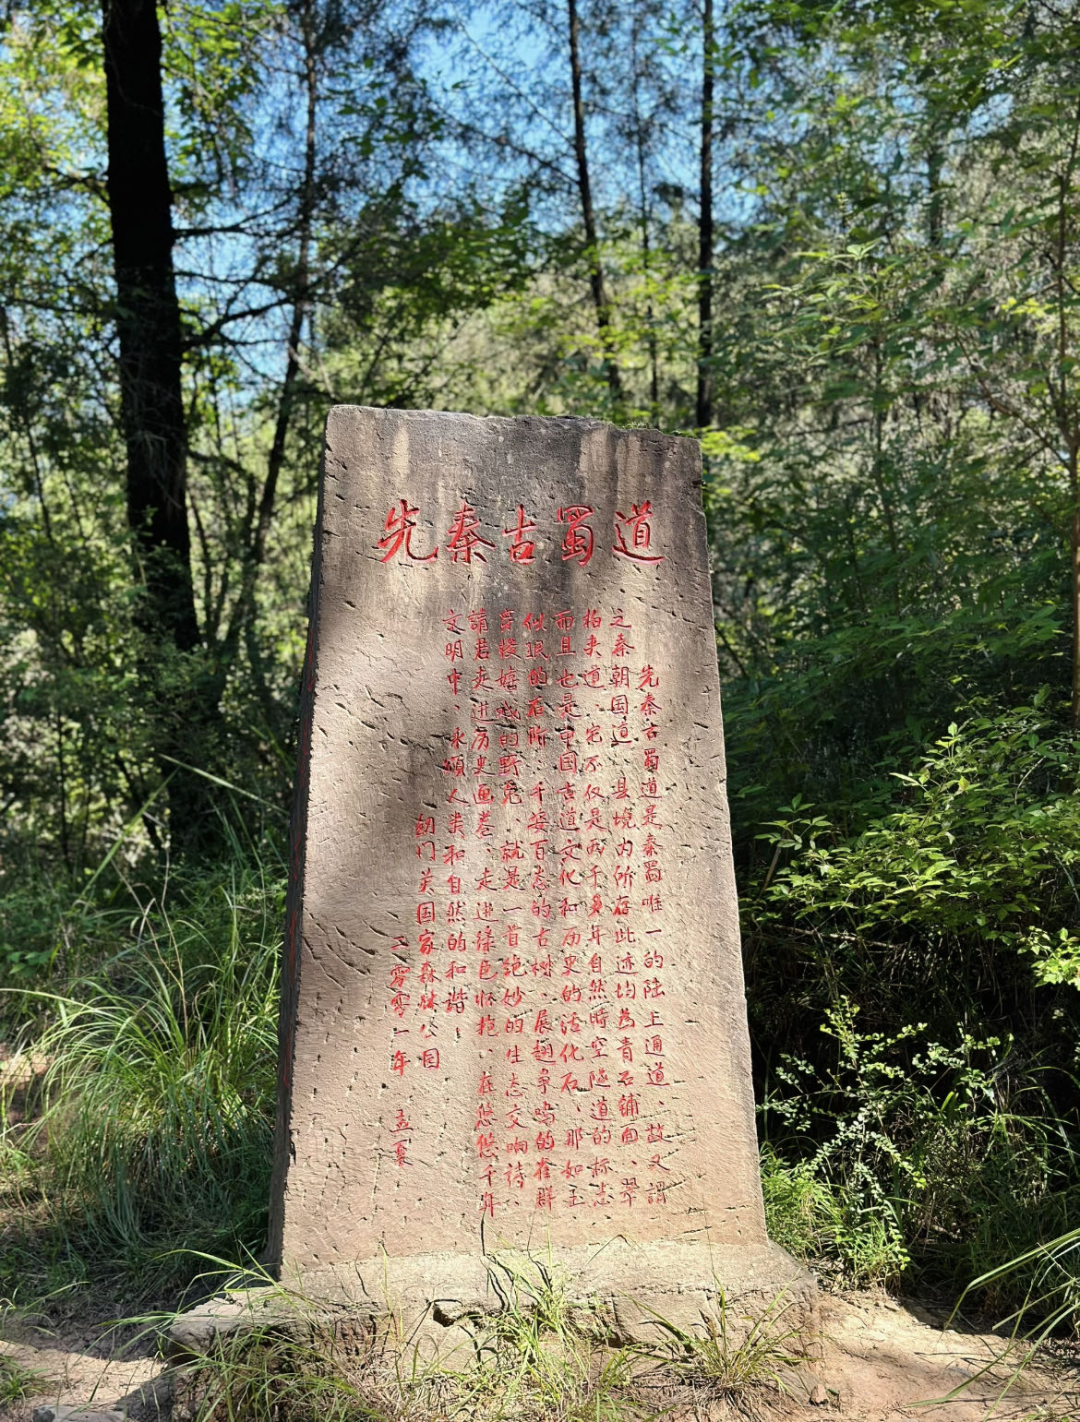 先秦古蜀道
先秦古蜀道是秦蜀唯一的陆上通道、故又謂
之秦朝国道、县境内所存此迹均为青石铺面、翠
柏夹道、它不仅是两千多年自然時空隧道的标志
而且也是中国古道文化和历史的活化石、那如玉
似珉的石阶、千姿百态的古树、展翅争鸣的雀群
穿梭嬉戏的野兔、就是一首绝妙的生态交响诗、
請君走进历史画卷、走进绿色怀抱、在悠悠千年
文明中、永頌人类和自然的和谐、
剑门关国家森林公园
二零零一年 孟夏